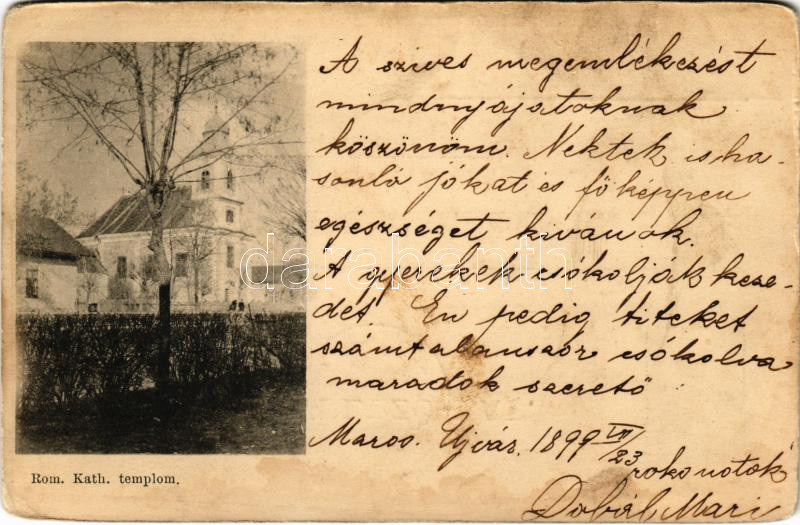 A szives megemlékezést
mindnyájatoknak
köszönöm. Nektek is ha-
sonló jókat és főképpen
egészséget kivánok.
A gyerekek csókolják keze-
det. Én pedig titeket
számtalanszor csókolva
maradok szerető
Maros. Ujvár. 1899 VII/23
rokonotok
Dobál Mari
Rom. Kath. templom.
darabanth.com